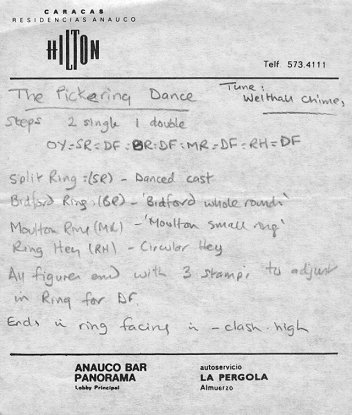 CARACAS
RESIDENCIAS ANAUCO
HILTON
Telf. 573.4111
The Pickering Dance
Tune:
Welthall Chimes,
Steps 2 single 1 double
OY=SR=DF:BR:DF:MR=DF=RH=DF
Split Ring:(SR) - Danced cast
Bidford Ring:(BR) - 'Bidford whole rounds'
Moulton Ring (MR) - 'Moulton small ring'
Ring Hey (RH) - Circular Hey
All figures end with 3 stamps to adjust
in Ring for DF.
Ends in ring facing in - clash high
ANAUCO BAR
PANORAMA
Lobby Principal
autoservicio
LA PERGOLA
Almuerzo